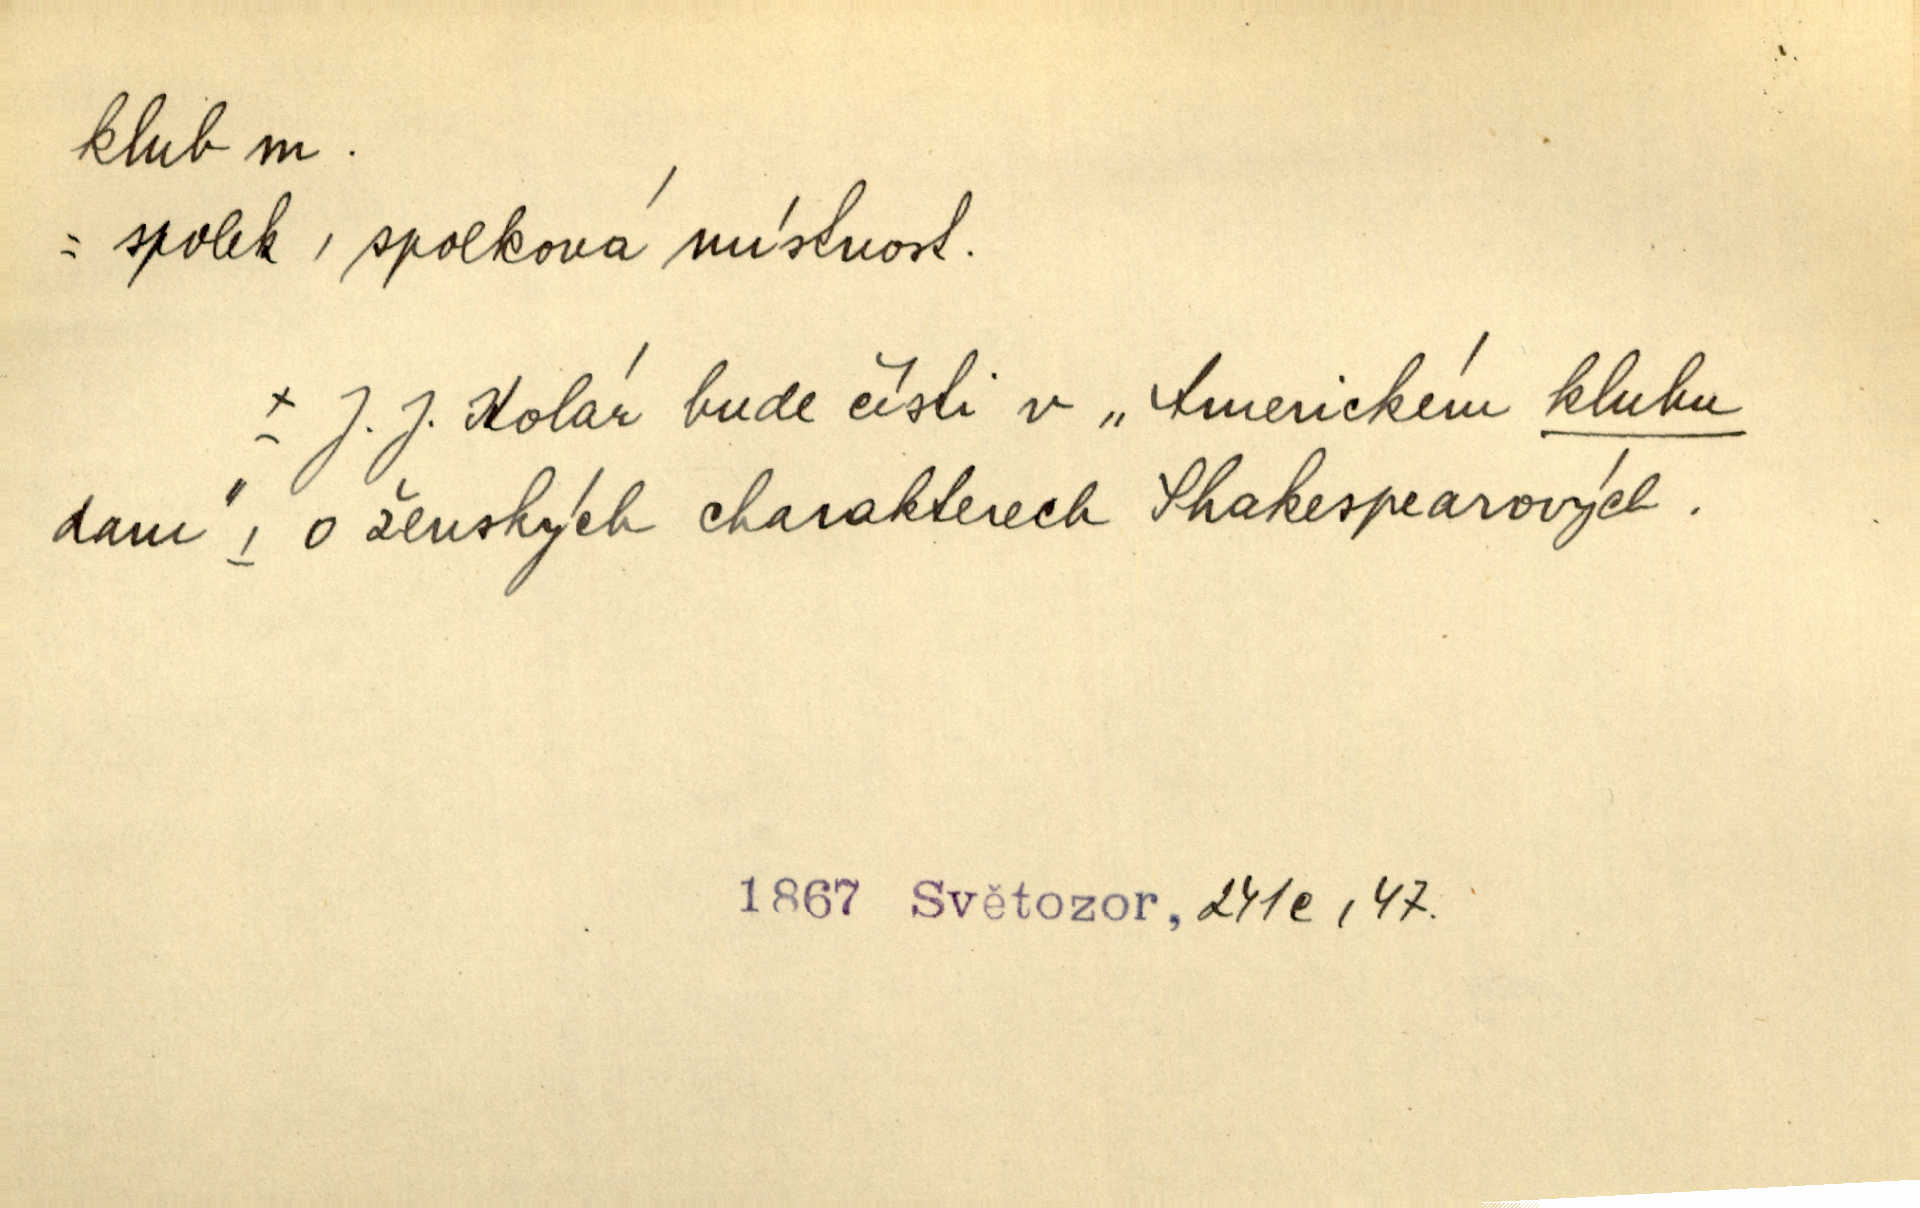 klub m.
= spolek, spolková místnost.
+ J. J. Kolár bude čísti v „Americkém klubu
dam“, o ženských charakterech Shakespearových.
1867 Světozor, 241c, 47.